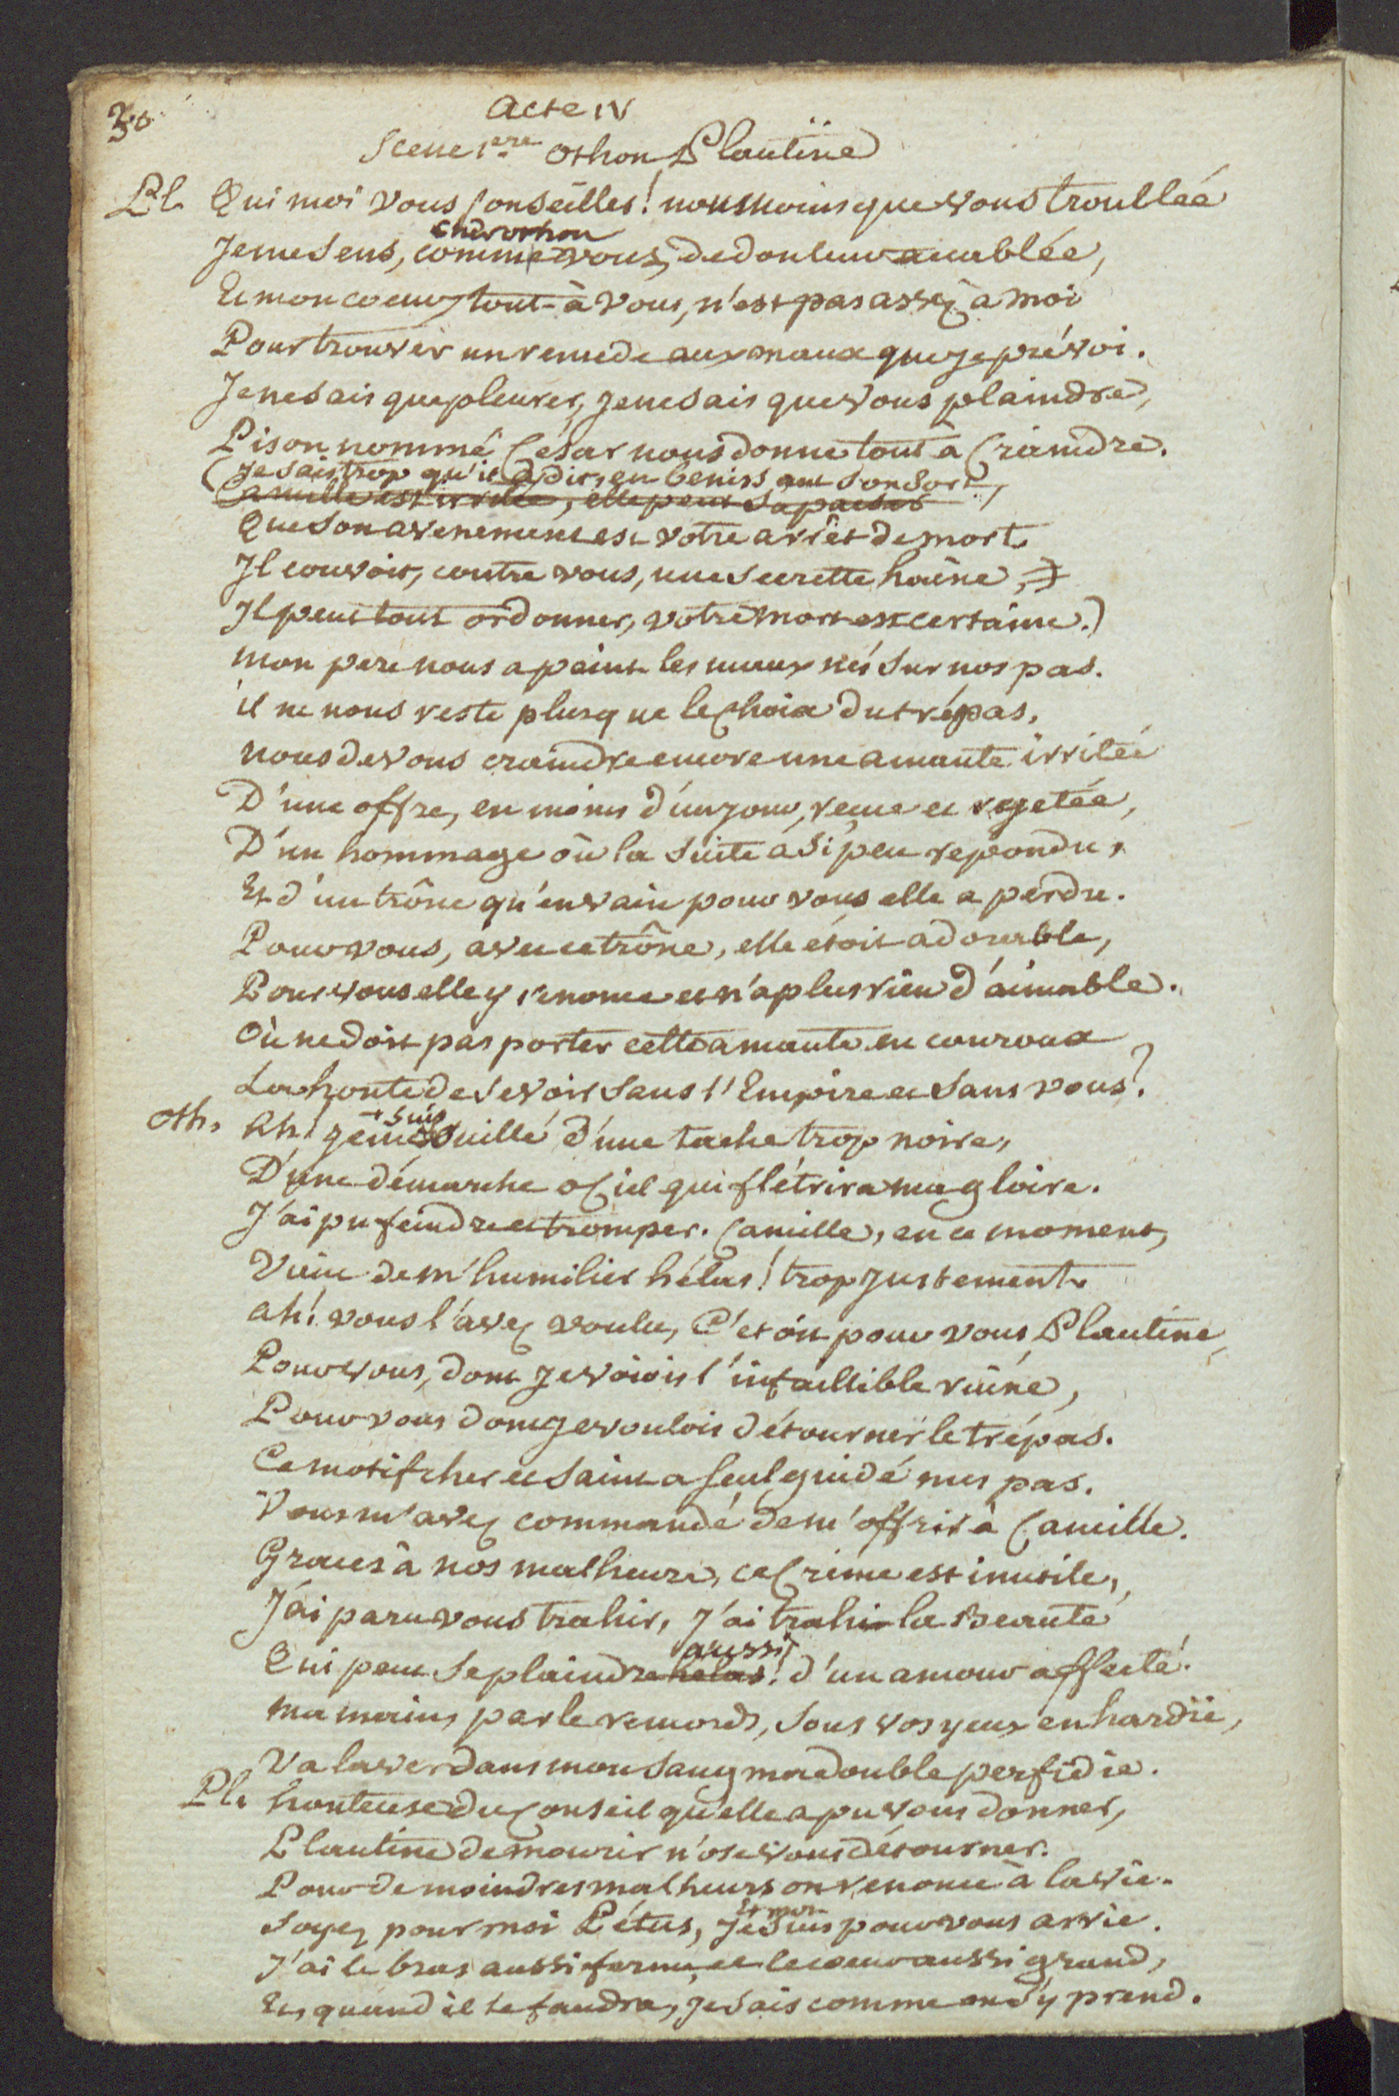 30
Acte IV
Scene 1ere Othon Plautine
Pl. Qui moi vous conseiller! non moins que vous troublée
cher othon
Je me sens, comme vous, de douleur accablée,
Et mon coeur, tout à vous, n'est pas assez à moi
Pour trouver un remede aux maux que je prévoi.
Je ne sais que pleurer, je ne sais que vous plaindre,
Pison nommé César nous donne tout à craindre.
(Je sais trop qu'il a dit, en beniss ant son sort,
Camille est irritée, elle peut s'apaiser
Que son avenement est votre arrêt de mort.
Il couvoit, contre vous, une secrette haine,
Il peut tout ordonner, votre mort est certaine.)
mon pere nous a peint les maux nés sur nos pas.
il ne nous reste plus que le choix du trépas.
nous devons craindre encore une amante irritée
D'une offre, en moins d'un jour, recue et rejetée,
D'un hommage où la suite a si peu repondu,
Et d'un trône qu'en vain pour vous elle a perdu.
Pour vous, avec ce trône, elle étoit adorable,
Pour vous elle y renonce et n'a plus rien d'aimable.
Où ne doit pas porter cette amante en couroux
La honte de se voir sans l'Empire et sans vous?
Oth. Ah! je me suis souillé d'une tache trop noire,
D'une démarche o Ciel qui flétrira ma gloire.
J'ai pu feindre et tromper. Camille, en ce moment,
Vient de m'humilier hélas! trop justement.
ah! vous l'avez voulu, C'étoit pour vous Plautine,
Pour vous, dont je voiois l'infaillible ruine,
Pour vous dont je voulois détourner le trépas.
Ce motif cher et saint a seul guidé mes pas.
Vous m'avez commandé de m'offrir à Camille.
Graces à nos malheurs, ce Crime est inutile,
J'ai paru vous trahir, j'ai trahi la Beauté
aussi
Qui peut se plaindre helas! d'un amour affecté.
ma main, par le remords, sous vos yeux enhardie,
Va laver dans mon sang ma double perfidie.
Pl. honteuse du Conseil qu'elle a pu vous donner,
Plautine de mourir n'ose vous détourner.
Pour de moindres malheurs on renonce à la vie.
Soyez pour moi Pétus, je suis pour vous arrie.
J'ai le bras aussi ferme et le coeur aussi grand,
Et, quand il le faudra, je sais comme on s'y prend.